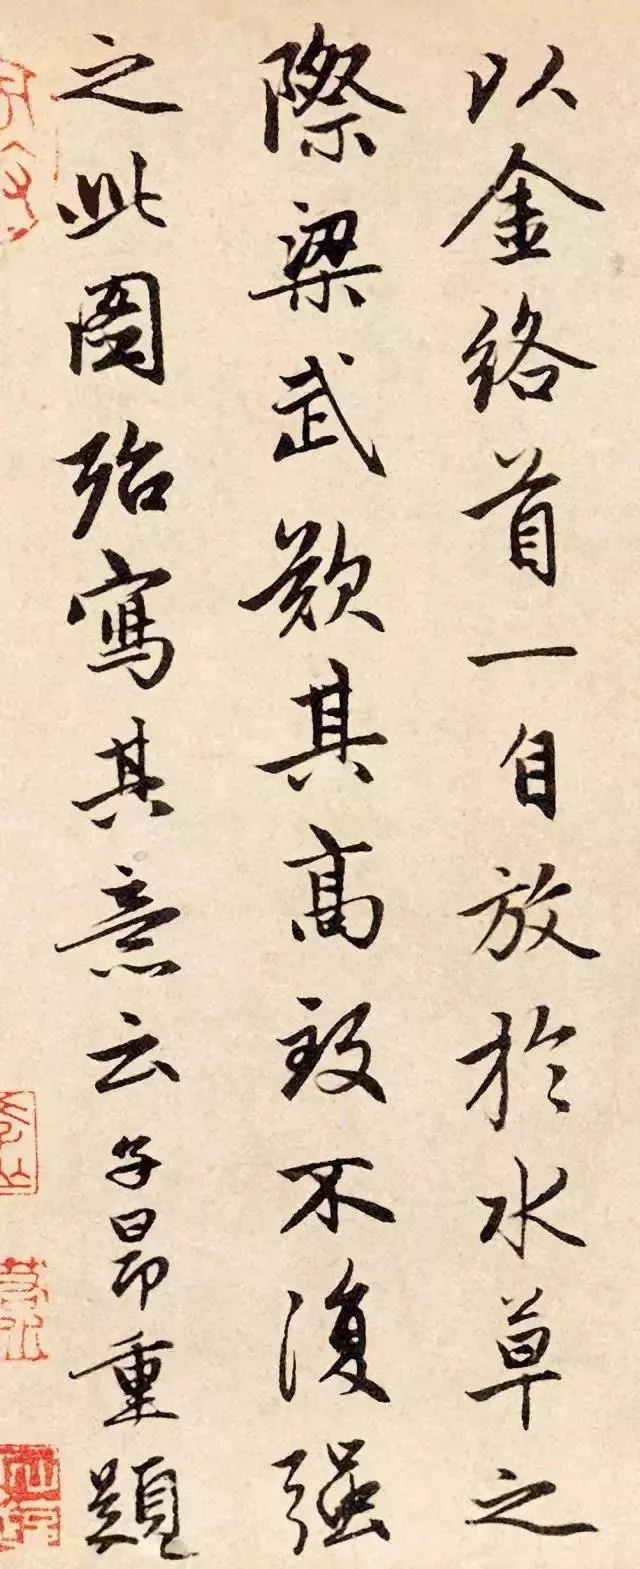 以金络首一自放於水草之
際梁武欽其高致不復强
之此圖殆寫其意云子昂重題